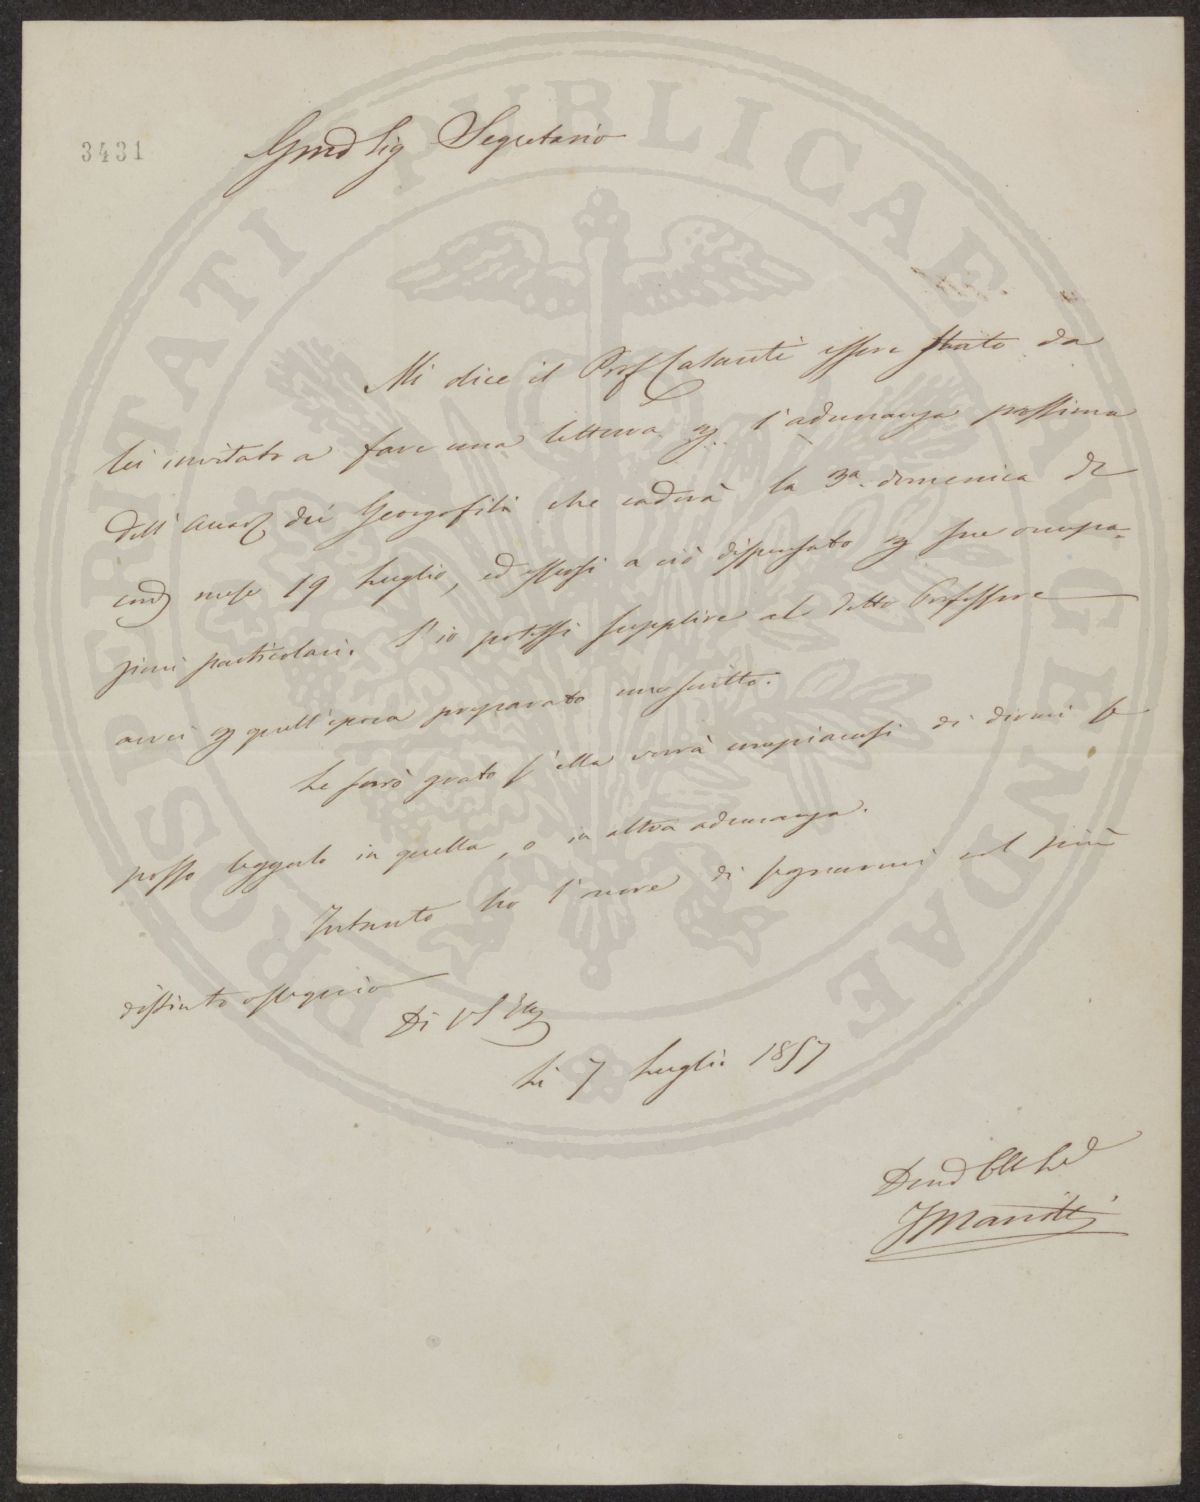 3431
Gmo Sig Segretario
Mi dice il Prof Calanti essere stato da
lei invitato a fare una lettura p. l'adunanza prossima
dell' Accad dei Georgofili che caderà la 3a domenica di
cord mese 19 Luglio, ed essersi a ciò dispensato p sue occupa-
zioni particolari. S'io potessi supplire al detto Professore
avrei p quell'epoca preparato uno scritto.
Le sarò grato s'ella vorrà compiacersi di dirmi se
posso leggerlo in quella, o in altra adunanza.
Intanto ho l'onore di segnarmi col più
distinto ossequio
Di VS Ill
Li 7 Luglio 1857
PROSPERITATI PUBLICAE AUGENDAE